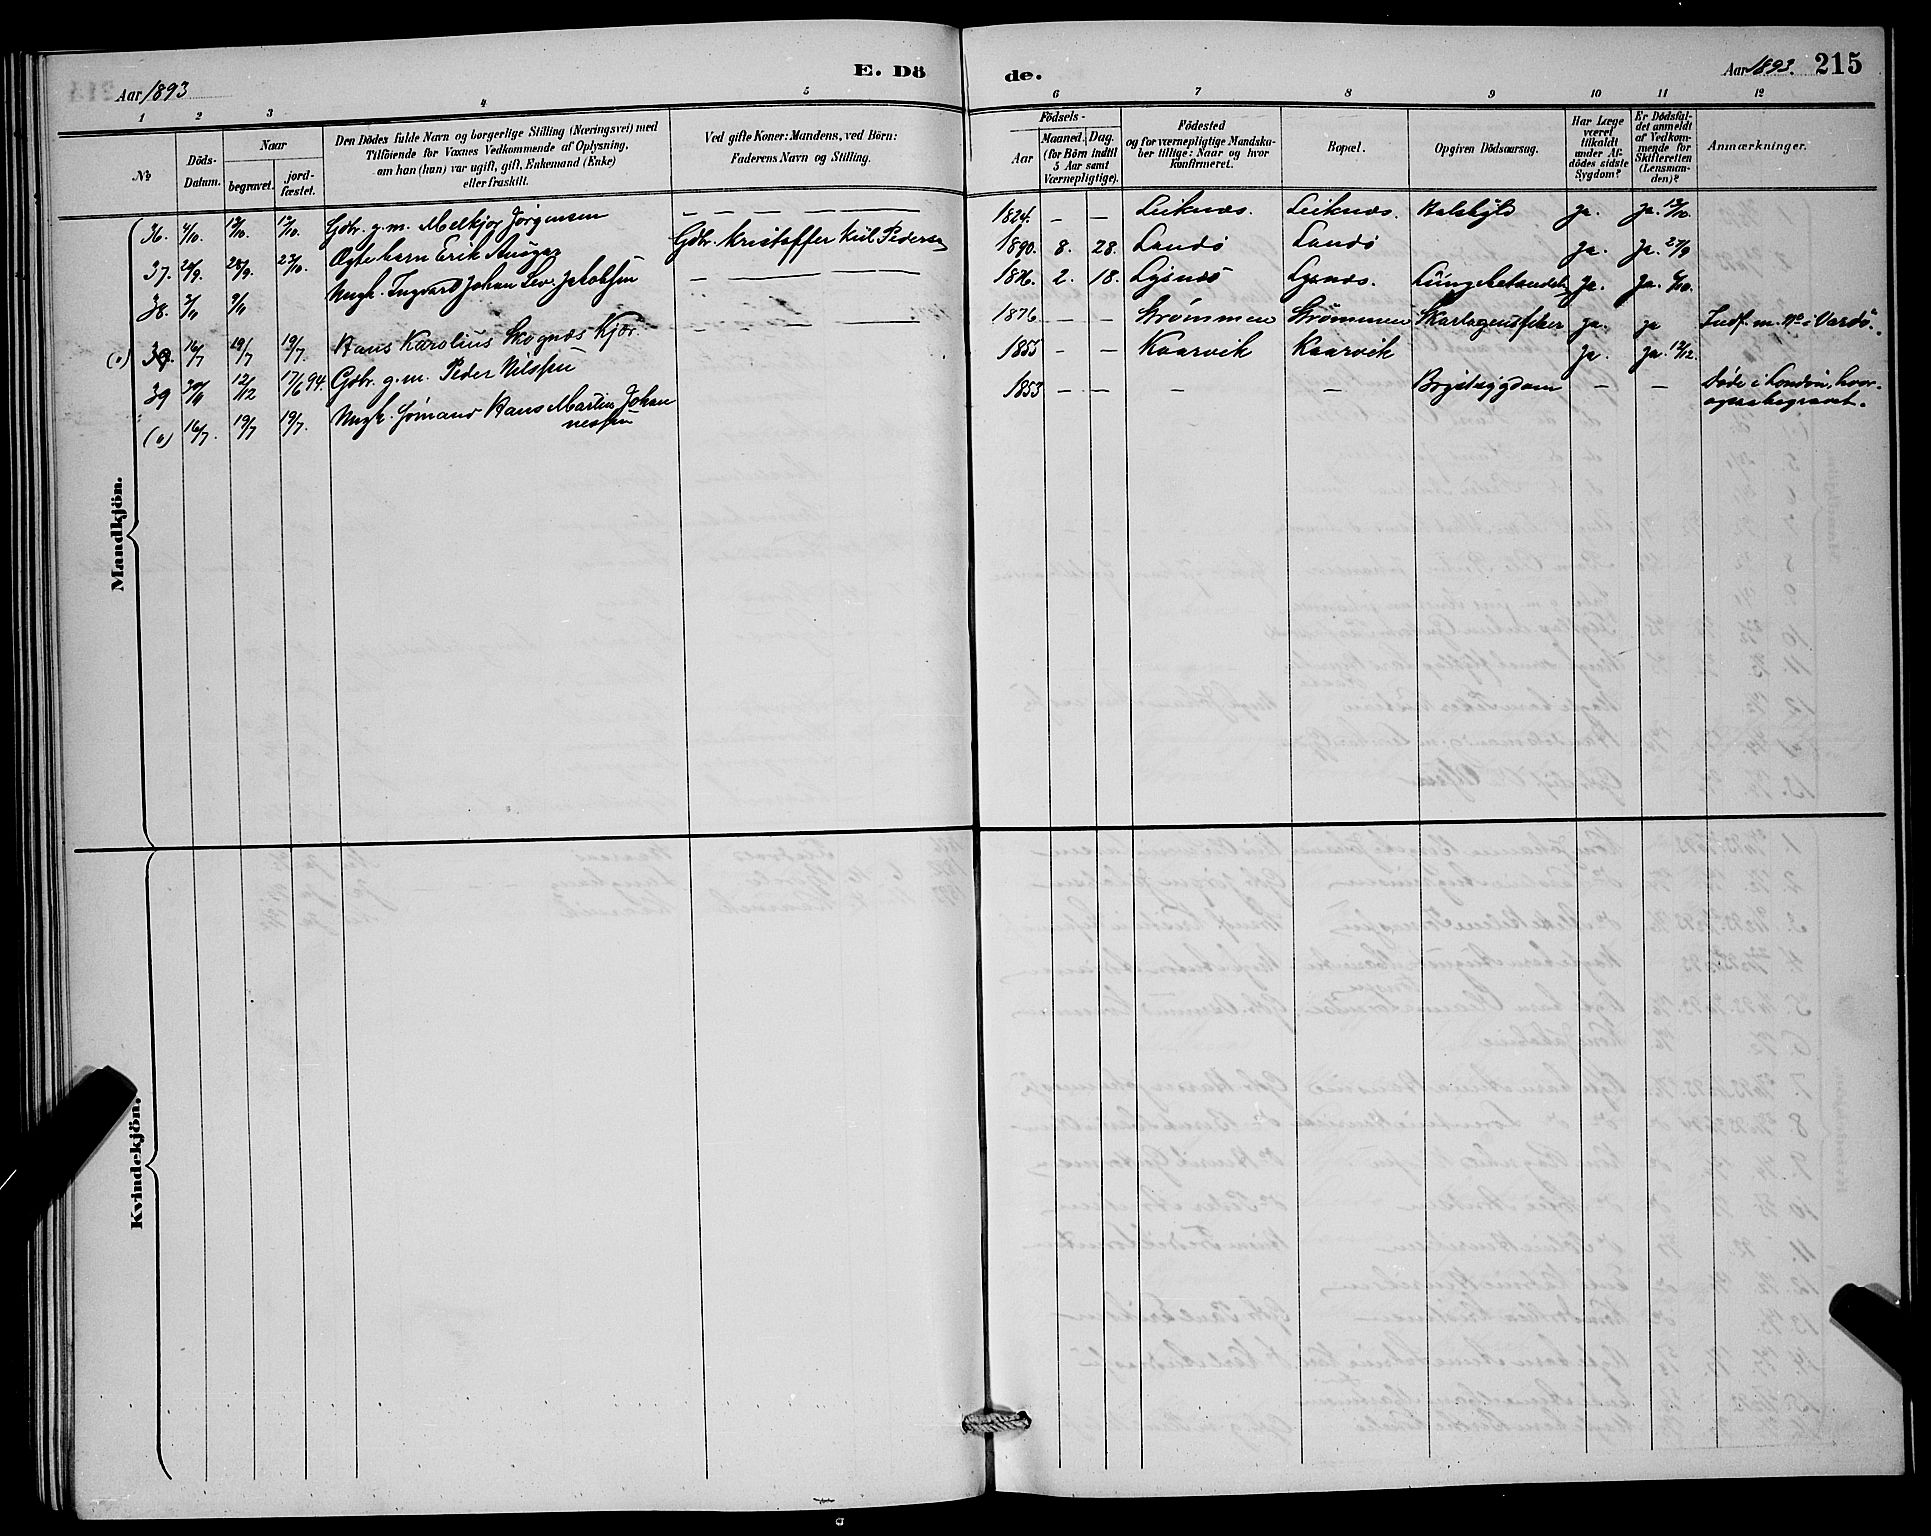 Aar 1893
E. Dö
de.
Aar 1893. 215
1 2 3 4 5 6 7 8 9 10 11 12
No
Döds-Datum.
Naar
begravet.
jord-fæstet.
Den Dödes fulde Navn og borgerlige Stilling (Næringsvei) med
Tilföiende for Voxnes Vedkommende af Oplysning,
om han (hun) var ugift, gift, Enkemand (Enke)
eller fraskilt.
Ved gifte Koner: Mandens, ved Börn:
Faderens Navn og Stilling.
Födsels-
Aar
Maaned. Dag.
(for Börn indtil
5 Aar samt
Værnepligtige).
Födested
og for værnepligtige Mandska-
ber tillige: Naar og hvor
konfirmeret.
Bopæl.
Opgiven Dödsaarsag.
Har Læge
været
tilkaldt
under Af-
dödes sidste
Sygdom?
Er Dödsfal-
det anmeldt
af Vedkom-
mende for
Skifteretten
(Lensman-
den)?
Anmærkninger.
Mandkjön.
36. 4/10. 12/10. 12/10. Gbr. g. m. Melkjor Jörgensen — — — 1824. — — Leiknes. Leiknes. Halsbyld ja. ja. 12/10.
37. 20/9. 28/9. 23/10. Ægte barn Erik Ansgar Gbr. Kristoffer Kiil Pedersen 1890. 8. 28. Landö Landö ja. ja. 27/9
38. 3/11 9/11 Ungk. Ingvard Johan Lev. Jakobsen — — — 1876. 2. 18. Lysnes Lysnes. Lungebetændelse ja. ja.
(a) 39. 16/7 19/7 19/7. Hans Karolius Skognæs Kjær. 1876 — — Strömmen Strömmen Skarlagensfeber ja. ja Indf. m. No i Vardö.
39 30/11 12/12 17/6 94. Gbr. g. m. Peder Nilssen 1855 — — Kaarvik Kaarvik ja. ja. 12/12.
(a) 16/7. 19/7 19/7. Ungk. Sömand Hans Martin Johan
nessen 1853 — — — — Brystsygdom — — Döde i London, hvor-
ogsaa begravet.
Kvindekjön.